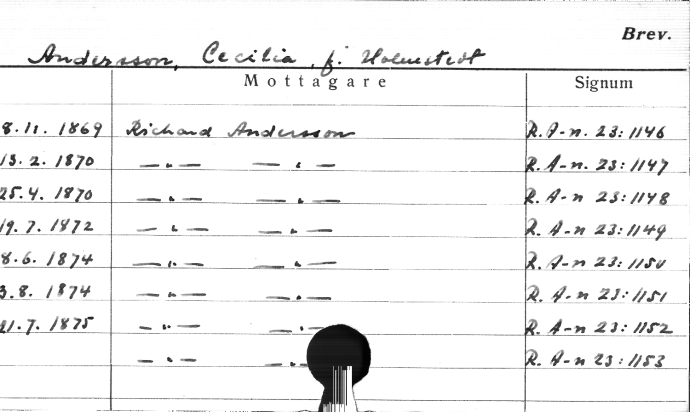 Brev.
Andersson, Cecilia, f. Holmstedt
Mottagare Signum
8.11. 1869 Richard Andersson R. A-n. 23:1146
13. 2. 1870 —„— —„— R. A-n. 23:1147
25.4. 1870 —„— —„— R. A-n 23:1148
19. 7. 1872 —„— —„— R. A-n 23:1149
8.6. 1874 —„— —„— R. A-n 23:1150
3.8. 1874 —„— —„— R. A-n 23:1151
21.7. 1875 —„— —„— R. A-n 23:1152
—„— —„— R. A-n 23:1153